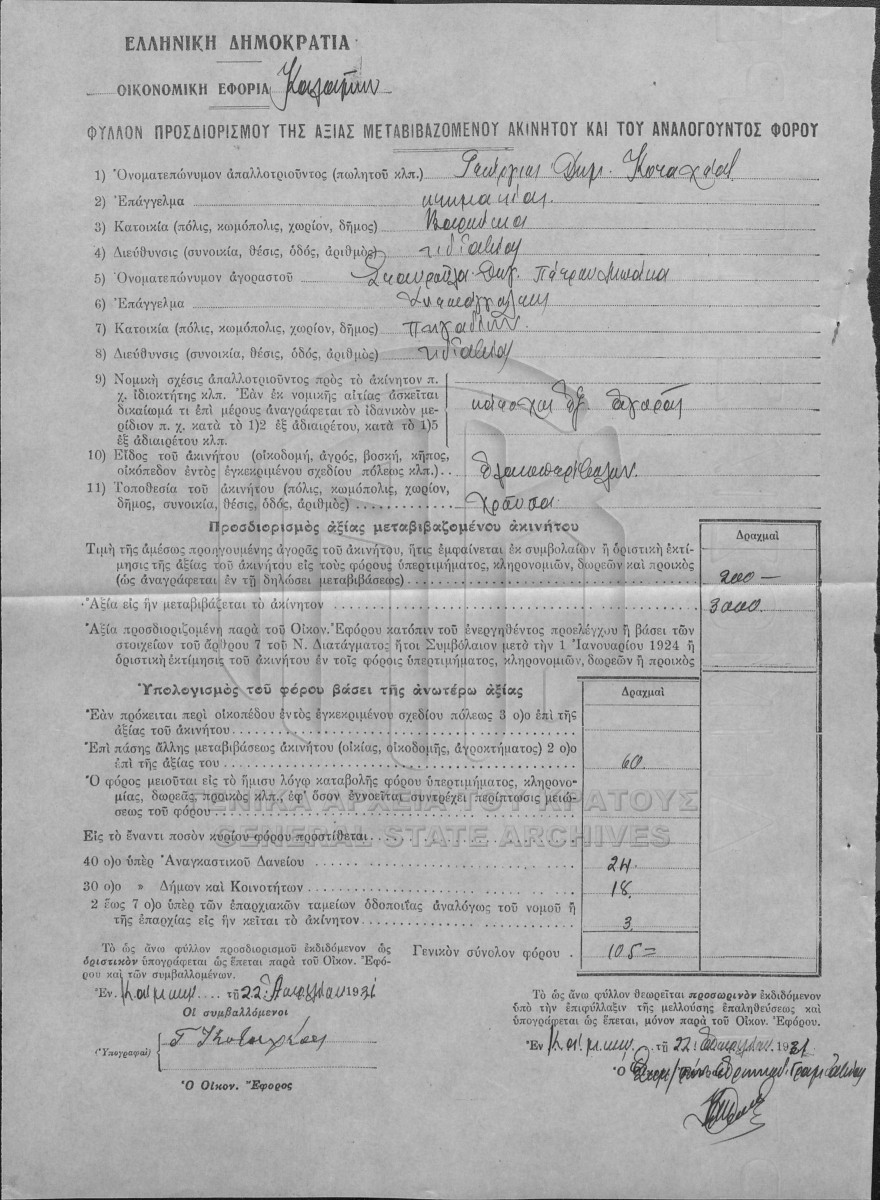 ΕΛΛΗΝΙΚΗ ΔΗΜΟΚΡΑΤΙΑ
ΟΙΚΟΝΟΜΙΚΗ ΕΦΟΡΙΑ Καλαμών
ΦΥΛΛΟΝ ΠΡΟΣΔΙΟΡΙΣΜΟΥ ΤΗΣ ΑΞΙΑΣ ΜΕΤΑΒΙΒΑΖΟΜΕΝΟΥ ΑΚΙΝΗΤΟΥ ΚΑΙ ΤΟΥ ΑΝΑΛΟΓΟΥΝΤΟΣ ΦΟΡΟΥ
1) Ὀνοματεπώνυμον ἀπαλλοτριοῦντος (πωλητοῦ κλπ.) Γεώργιος Δημ.
2) Ἐπάγγελμα κτηματίας
3) Κατοικία (πόλις, κωμόπολις, χωρίον, δῆμος)
4) Διεύθυνσις (συνοικία, θέσις, ὁδός, ἀριθμὸς)
5) Ὀνοματεπώνυμον ἀγοραστοῦ Σταυρούλα
6) Ἐπάγγελμα
7) Κατοικία (πόλις, κωμόπολις, χωρίον, δῆμος)
8) Διεύθυνσις (συνοικία, θέσις, ὁδός, ἀριθμὸς)
9) Νομικὴ σχέσις ἀπαλλοτριοῦντος πρὸς τὸ ἀκίνητον π.
χ. ἰδιοκτήτης κλπ. Ἐὰν ἐκ νομικῆς αἰτίας ἀσκεῖται
δικαίωμά τι ἐπὶ μέρους ἀναγράφεται τὸ ἰδανικὸν με-
ρίδιον π. χ. κατὰ τὸ 1)2 ἐξ ἀδιαιρέτου, κατὰ τὸ 1)5
ἐξ ἀδιαιρέτου κλπ.
κάτοχος ἐξ ἀγορᾶς
10) Εἶδος τοῦ ἀκινήτου (οἰκοδομή, ἀγρός, βοσκή, κῆπος,
οἰκόπεδον ἐντὸς ἐγκεκριμένου σχεδίου πόλεως κλπ.)
11) Τοποθεσία τοῦ ἀκινήτου (πόλις, κωμόπολις, χωρίον,
δῆμος, συνοικία, θέσις, ὁδός, ἀριθμὸς)
Προσδιορισμὸς ἀξίας μεταβιβαζομένου ἀκινήτου
Δραχμαὶ
Τιμὴ τῆς ἀμέσως προηγουμένης ἀγορᾶς τοῦ ἀκινήτου, ἥτις ἐμφαίνεται ἐκ συμβολαίων ἢ ὁριστικὴ ἐκτί-
μησις τῆς ἀξίας τοῦ ἀκινήτου εἰς τοὺς φόρους ὑπερτιμήματος, κληρονομιῶν, δωρεῶν καὶ προικὸς
(ὡς ἀναγράφεται ἐν τῇ δηλώσει μεταβιβάσεως) 200 —
Ἀξία εἰς ἣν μεταβιβάζεται τὸ ἀκίνητον 3000
Ἀξία προσδιοριζομένη παρὰ τοῦ Οἰκον. Ἐφόρου κατόπιν τοῦ ἐνεργηθέντος προελέγχου ἢ βάσει τῶν
στοιχείων τοῦ ἄρθρου 7 τοῦ Ν. Διατάγματος ἤτοι Συμβόλαιον μετὰ τὴν 1 Ἰανουαρίου 1924 ἢ
ὁριστικὴ ἐκτίμησις τοῦ ἀκινήτου ἐν τοῖς φόροις ὑπερτιμήματος, κληρονομιῶν, δωρεῶν ἢ προικὸς
Ὑπολογισμὸς τοῦ φόρου βάσει τῆς ἀνωτέρω ἀξίας
Δραχμαὶ
Ἐὰν πρόκειται περὶ οἰκοπέδου ἐντὸς ἐγκεκριμένου σχεδίου πόλεως 3 ο)ο ἐπὶ τῆς
ἀξίας τοῦ ἀκινήτου
Ἐπὶ πάσης ἄλλης μεταβιβάσεως ἀκινήτου (οἰκίας, οἰκοδομῆς, ἀγροκτήματος) 2 ο)ο
ἐπὶ τῆς ἀξίας του 60
Ὁ φόρος μειοῦται εἰς τὸ ἥμισυ λόγῳ καταβολῆς φόρου ὑπερτιμήματος, κληρονο-
μίας, δωρεᾶς, προικὸς κλπ., ἐφ' ὅσον ἐννοεῖται συντρέχει περίπτωσις μειώ-
σεως τοῦ φόρου
ΓΕΝΙΚΑ ΑΡΧΕΙΑ ΤΟΥ ΚΡΑΤΟΥΣ
GENERAL STATE ARCHIVES
Εἰς τὸ ἔναντι ποσὸν κυρίου φόρου προστίθεται
40 ο)ο ὑπὲρ Ἀναγκαστικοῦ Δανείου 24
30 ο)ο » Δήμων καὶ Κοινοτήτων 18
2 ἕως 7 ο)ο ὑπὲρ τῶν ἐπαρχιακῶν ταμείων ὁδοποιΐας ἀναλόγως τοῦ νομοῦ ἢ
τῆς ἐπαρχίας εἰς ἣν κεῖται τὸ ἀκίνητον 3
Γενικὸν σύνολον φόρου 105 =
Τὸ ὡς ἄνω φύλλον προσδιορισμοῦ ἐκδιδόμενον ὡς
ὁριστικὸν ὑπογράφεται ὡς ἕπεται παρὰ τοῦ Οἰκον. Ἐφό-
ρου καὶ τῶν συμβαλλομένων.
Ἐν τῇ 22 Ἀπριλίου 1931
Οἱ συμβαλλόμενοι
(Ὑπογραφαὶ)
Ὁ Οἰκον. Ἔφορος
Τὸ ὡς ἄνω φύλλον θεωρεῖται προσωρινὸν ἐκδιδόμενον
ὑπὸ τὴν ἐπιφύλλαξιν τῆς μελλούσης ἐπαληθεύσεως καὶ
ὑπογράφεται ὡς ἕπεται, μόνον παρὰ τοῦ Οἰκον. Ἐφόρου.
Ἐν τῇ 22 Ἀπριλίου 1931
Ὁ